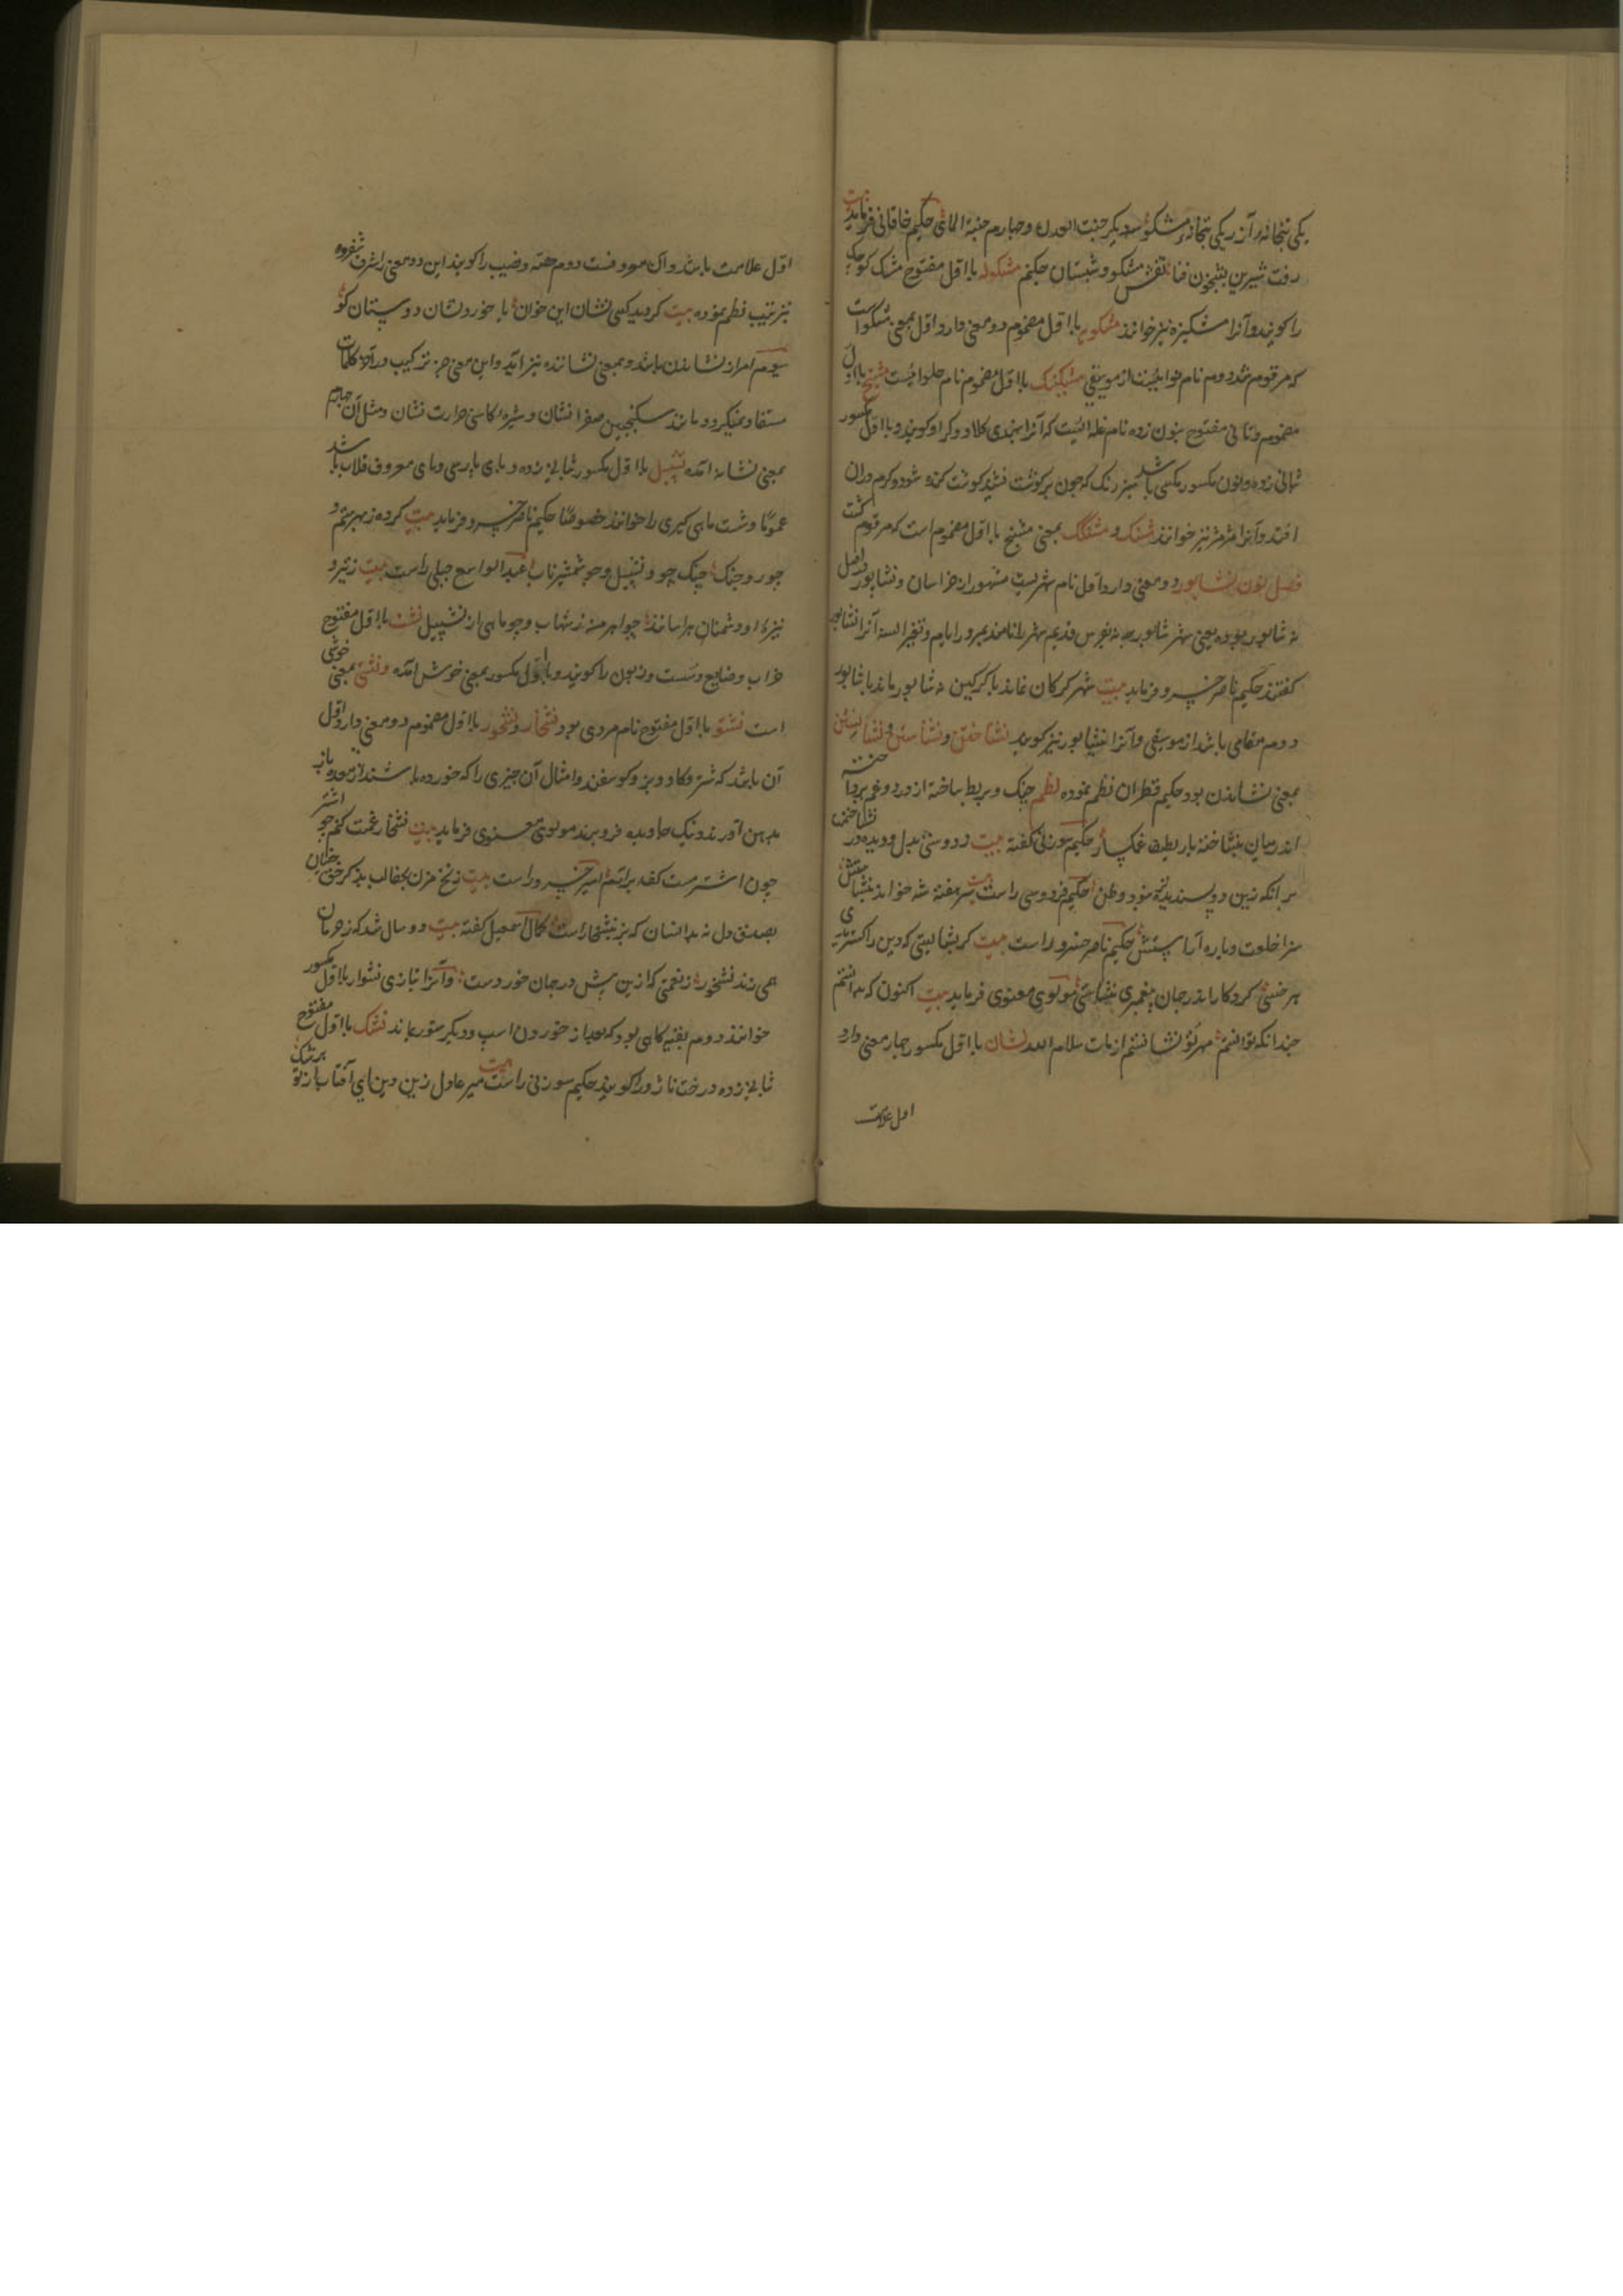 یکی بتخانه آزر یکی بتخانه مشکو سدیگر جنت العدن و چهارم جنة الماوی حکیم خاقانی فرماید بیت
رفت شیرین بشبخون فنا نقش مشکو و شبستان چکنم مشکوله با اول مفتوح مشک کوچک
را کویند و آنرا مشکیزه نیز خوانند مشکویه با اول مضموم دو معنی دارد اول بمعنی مشکو است
که مرقوم شد دوم نام نوائیست از موسیقی با اول مضموم نام حلوائیست مشنج با اول
مضموم و ثانی مفتوح بنون زده نام غله ایست که آنرا بهندی کلاو و کراو کویند و با اول مکسور
ثانی زده و نون مکسور مکسی باشد سبز رنک که چون بر کوشت نشیند کوشت کنده شود و کرم دران
افتد و آنرا نیز خوانند مشنک و مشنگک بمعنی مشنج با اول مضموم است که مرقوم کشت
فصل نون نشاپور دو معنی دارد اول نام شهریست مشهور از خراسان و نشاپور در اصل
نه شاپور بوده یعنی شهر شاپور چه نه بفرس قدیم شهر را نامند بمرور ایام و تغیر السنه آنرا نشاپور
کفتند حکیم ناصر خسرو فرماید بیت شهر کرکان نماند با کرکین نه نشاپور ماند با شاپور
دوم مقامی باشد از موسیقی و آنرا نیشاپور نیز کویند نشاختن و نشاستن و نشانیدن
بمعنی نشاندن بود حکیم قطران نظم نموده نظم چنک و بربط ساخته از درد و غم پرداخته
اندر میان بنشاخته یار لطیف غمکسار حکیم سوزنی کفته بیت ز دوستی بدل و دیده در نشاختمت
بر آنکه زین دو پسندیده بود وطن حکیم فردوسی راست بیت سر هفته شه خواند بنشاستش
سزا خلوت و باره آراستش حکیم ناصر خسرو راست بیت که دین را کستری
بر کردکار اندر جهان پیغمبری ننشاستی مولوی معنوی فرماید بیت اکنون که بدانستم
چندانکه توانستم مهر تو نشانستم از مات سلام الله نشان با اول مکسور چهار معنی دارد
اول علامت
اول علامت باشد و آن معروفست دوم حصه و نصیب را کویند این دو معنی را شرف شفروه
نیز بترتیب نظم نموده بیت کردید کسی نشان این خوان با خورد نشان دوستان کو
سیوم امر از نشاندن باشد و بمعنی نشاننده نیز آید و این معنی جز بترکیب در آخر کلمات
مستفاد نمیکردد مانند سکنجبین صفرا نشان و شیره کاسنی حرارت نشان و مثل آن چهارم
بمعنی نشانه آمده نشپیل با اول مکسور بثانی زده و بای پارسی و یای معروف قلاب باشد
عموما و شست ماهی کیری را خوانند خصوصا حکیم ناصر خسرو فرماید بیت کرده ز بهر ستم و
جور و جنک چنک چو نشپیل و چو شمشیر ناب عبدالواسع جبلی راست بیت ز تیر و
نیزه او دشمنان هراسانند چو اهرمن ز شهاب و چو ماهی از نشپیل نشت با اول مفتوح
خراب و ضایع و سست و زبون را کویند و با اول مکسور بمعنی خوش آمده و نشتی بمعنی خوشی
است نشتو با اول مفتوح نام مردی بود نشخار و نشخور با اول مضموم دو معنی دارد اول
آن باشد که شتر و کاو و بز و کوسفند و امثال آن چیزی را که خورده باشند از معده باز
بدهن آورند و نیک جاویده فرو برند مولوی معنوی فرماید بیت نشخار غمت کنم چو اشتر
چون اشتر مست کف بر آرم امیر خسرو راست بیت زنخ مزن بخیالت بذکر حق جنبان
بصدق دل نه بدانسان که بز بنشخار است کمال اسمعیل کفته بیت دو سال شد که ز حرمان
همی زند نشخور ز نعمتی که ازین پیش در جهان خوردست و آنرا بتازی نشوار با اول مکسور
خوانند دوم بقیه کاهی بود که بعد از خوردن اسپ و دیکر ستور بماند نشک با اول مفتوح
بثانی زده درخت ناژو را کویند حکیم سوزنی راست بیت میر عادل زین دین ای آفتاب از تو برشک